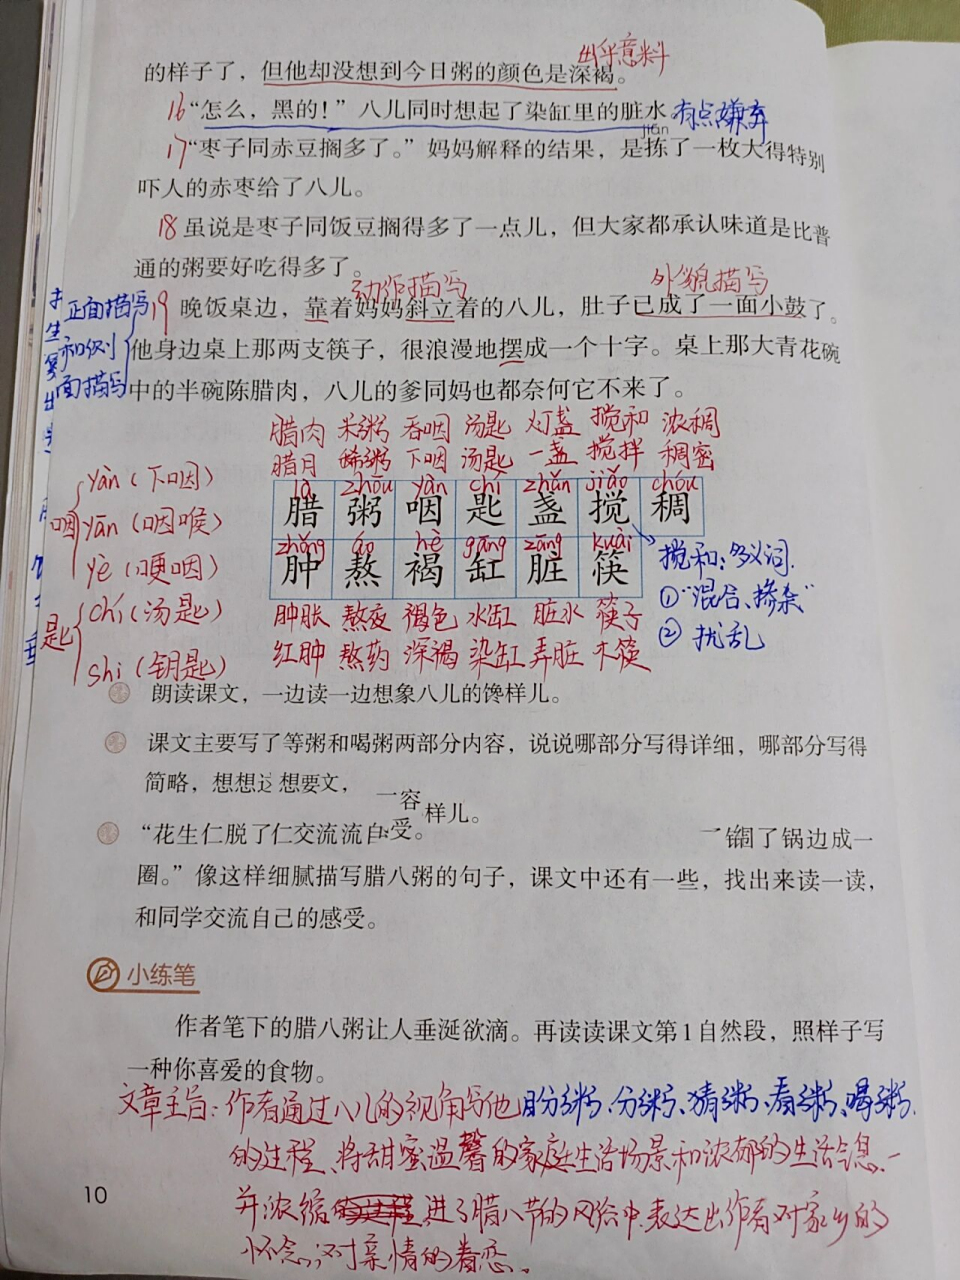 出乎意料
的样子了，但他却没想到今日粥的颜色是深褐。
16“怎么，黑的！”八儿同时想起了染缸里的脏水。有点嫌弃
jiǎn
17“枣子同赤豆搁多了。”妈妈解释的结果，是拣了一枚大得特别
吓人的赤枣给了八儿。
18 虽说是枣子同饭豆搁得多了一点儿，但大家都承认味道是比普
通的粥要好吃得多了。
动作描写 外貌描写
19 晚饭桌边，靠着妈妈斜立着的八儿，肚子已成了一面小鼓了。
他身边桌上那两支筷子，很浪漫地摆成一个十字。桌上那大青花碗
中的半碗陈腊肉，八儿的爹同妈也都奈何它不来了。
正面描写
和侧
面描写
腊肉 米粥 吞咽 汤匙 灯盏 搅和 浓稠
腊月 稀粥 下咽 汤匙 一盏 搅拌 稠密
là zhōu yàn chí zhǎn jiǎo chóu
腊 粥 咽 匙 盏 搅 稠
zhǒng áo hè gāng zāng kuài
肿 熬 褐 缸 脏 筷
肿胀 熬夜 褐色 水缸 脏水 筷子
红肿 熬药 深褐 染缸 弄脏 木筷
咽
yàn（下咽）
yān（咽喉）
yè（哽咽）
匙
chí（汤匙）
shi（钥匙）
搅和：多义词.
①“混合、掺杂”
② 扰乱
朗读课文，一边读一边想象八儿的馋样儿。
课文主要写了等粥和喝粥两部分内容，说说哪部分写得详细，哪部分写得
简略，想想这 想要文，
一容
样儿。
“花生仁脱了仁交流流自受。 锢了锅边成一
圈。”像这样细腻描写腊八粥的句子，课文中还有一些，找出来读一读，
和同学交流自己的感受。
小练笔
作者笔下的腊八粥让人垂涎欲滴。再读读课文第1自然段，照样子写
一种你喜爱的食物。
文章主旨：作者通过八儿的视角写他盼粥、分粥、猜粥、看粥、喝粥.
的过程、将甜蜜温馨的家庭生活场景和浓郁的生活气息一
并浓缩进了腊八节的风俗中.表达出作者对家乡的
怀念，对亲情的眷恋。
10